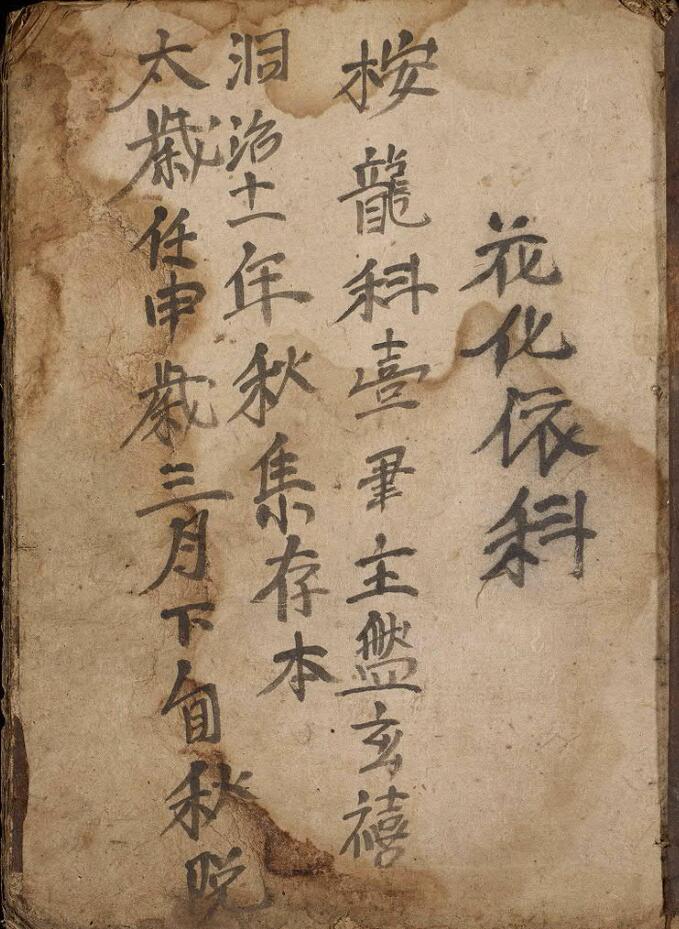 花化依科
桉龍科壹𤰞主盤玄禧
洞治十一年秋集存本
太歲任申歲三月下旬秋晚